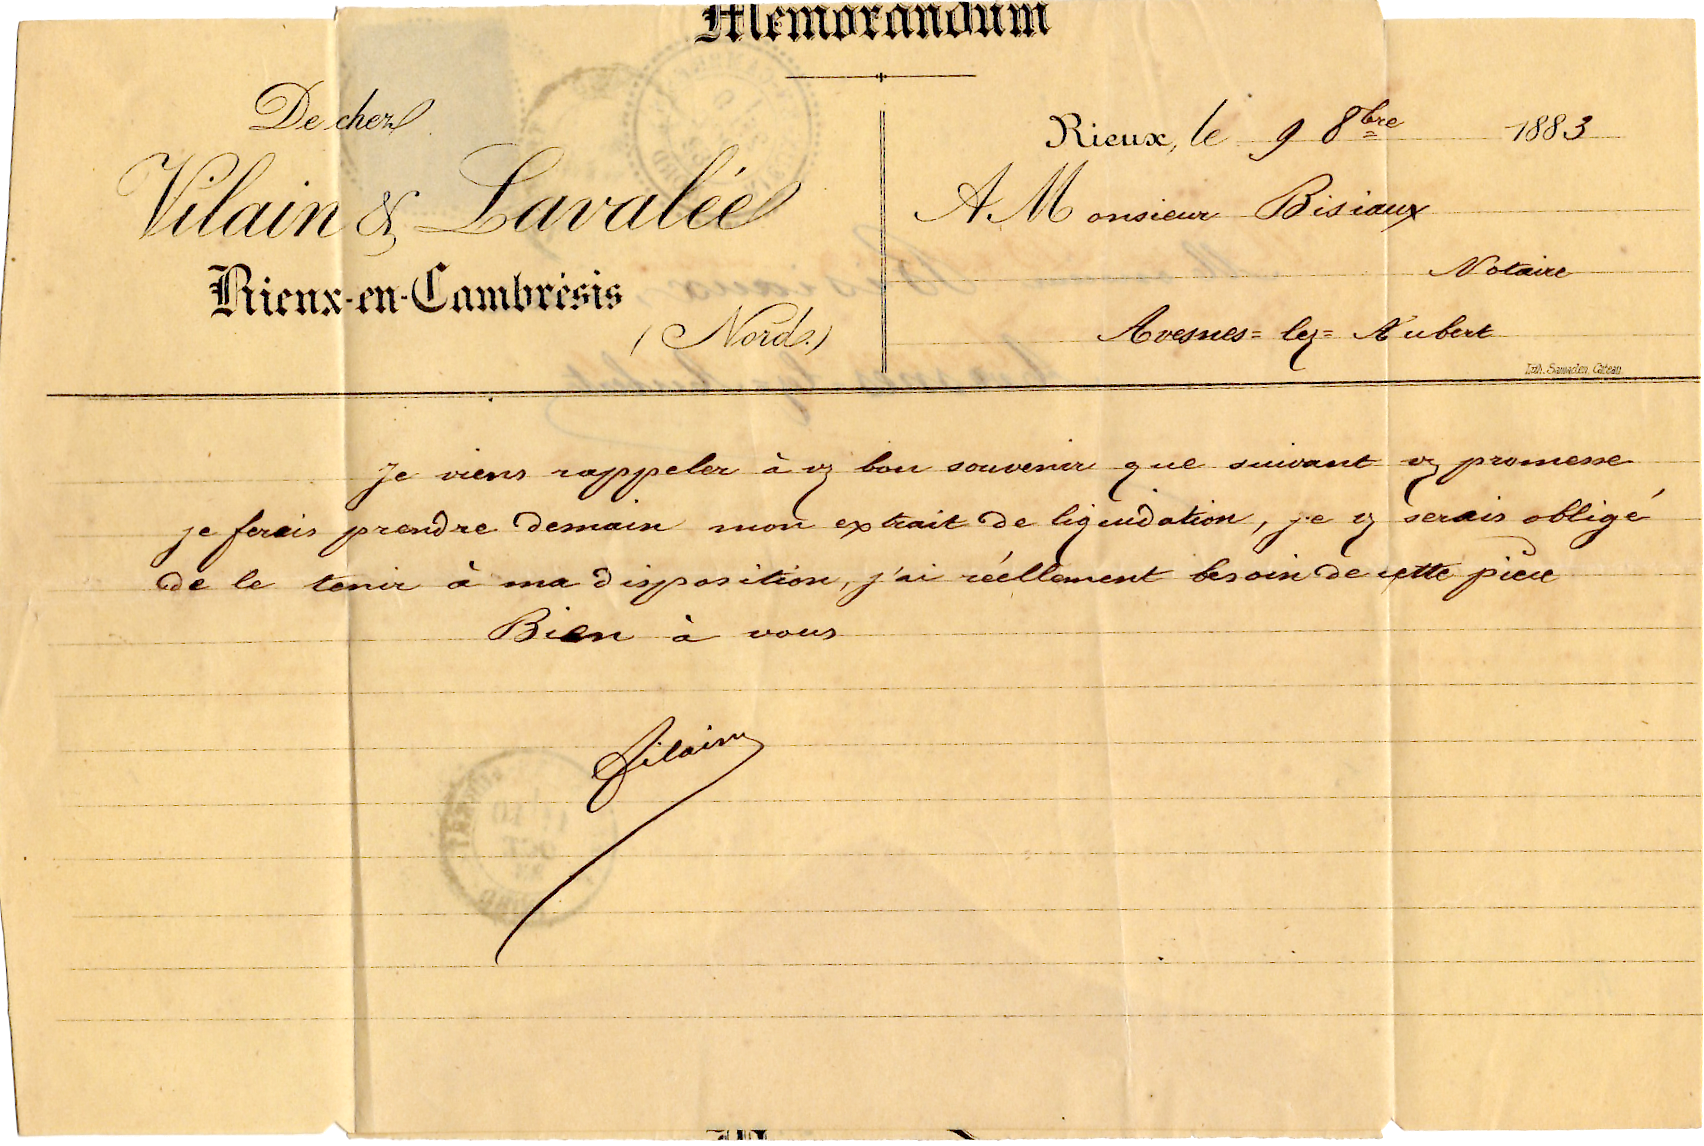 Memorandum
De chez
Vilain & Lavalée
Rieux-en-Cambrésis
(Nord.)
Rieux, le 9 8bre 1883
A Monsieur Bisiaux
Notaire
Avesnes=lez=Aubert
Lith. Samaden, Cateau.
Je viens rappeler à v bon souvenir que suivant v promesse
je ferais prendre demain mon extrait de liquidation, je v serais obligé
de le tenir à ma disposition, j'ai réellement besoin de cette pièce
Bien à vous
Vilain